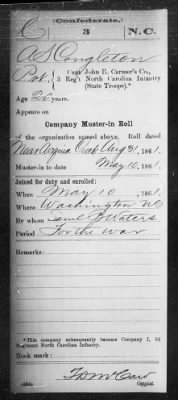 (Confederate.)
C 3 N.C.
A S Congleton
Pvt., Capt. John E. Carmer's Co.,
3 Reg't North Carolina Infantry
(State Troops).*
Age 22 years.
Appears on
Company Muster-in Roll
of the organization named above. Roll dated
Near Acquia Creek Aug 31, 1861.
Muster-in to date May 10, 1861.
Joined for duty and enrolled:
When May 10, 1861.
Where Washington NC
By whom Waters
Period For the war
Remarks:
*This company subsequently became Company I, 3d
Regiment North Carolina Infantry.
Book mark:
Copyist.